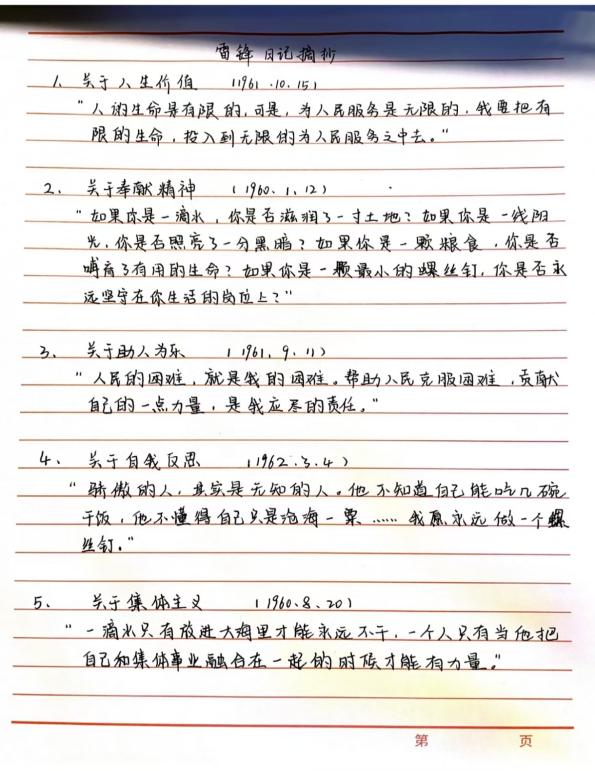 雷锋日记摘抄
1、关于人生价值 (1961.10.15)
"人的生命是有限的,可是,为人民服务是无限的,我要把有
限的生命,投入到无限的为人民服务之中去。"
2、关于奉献精神 (1960.1.12)
"如果你是一滴水,你是否滋润了一寸土地?如果你是一线阳
光,你是否照亮了一分黑暗?如果你是一颗粮食,你是否
哺育了有用的生命?如果你是一颗最小的螺丝钉,你是否永
远坚守在你生活的岗位上?"
3、关于助人为乐 (1961.9.11)
"人民的困难,就是我的困难。帮助人民克服困难,贡献
自己的一点力量,是我应尽的责任。"
4、关于自我反思 (1962.3.4)
"骄傲的人,其实是无知的人。他不知道自己能吃几碗
干饭,他不懂得自己只是沧海一粟……我愿永远做一个螺
丝钉。"
5、关于集体主义 (1960.8.20)
"一滴水只有放进大海里才能永远不干,一个人只有当他把
自己和集体事业融合在一起的时候才能有力量。"
第 页